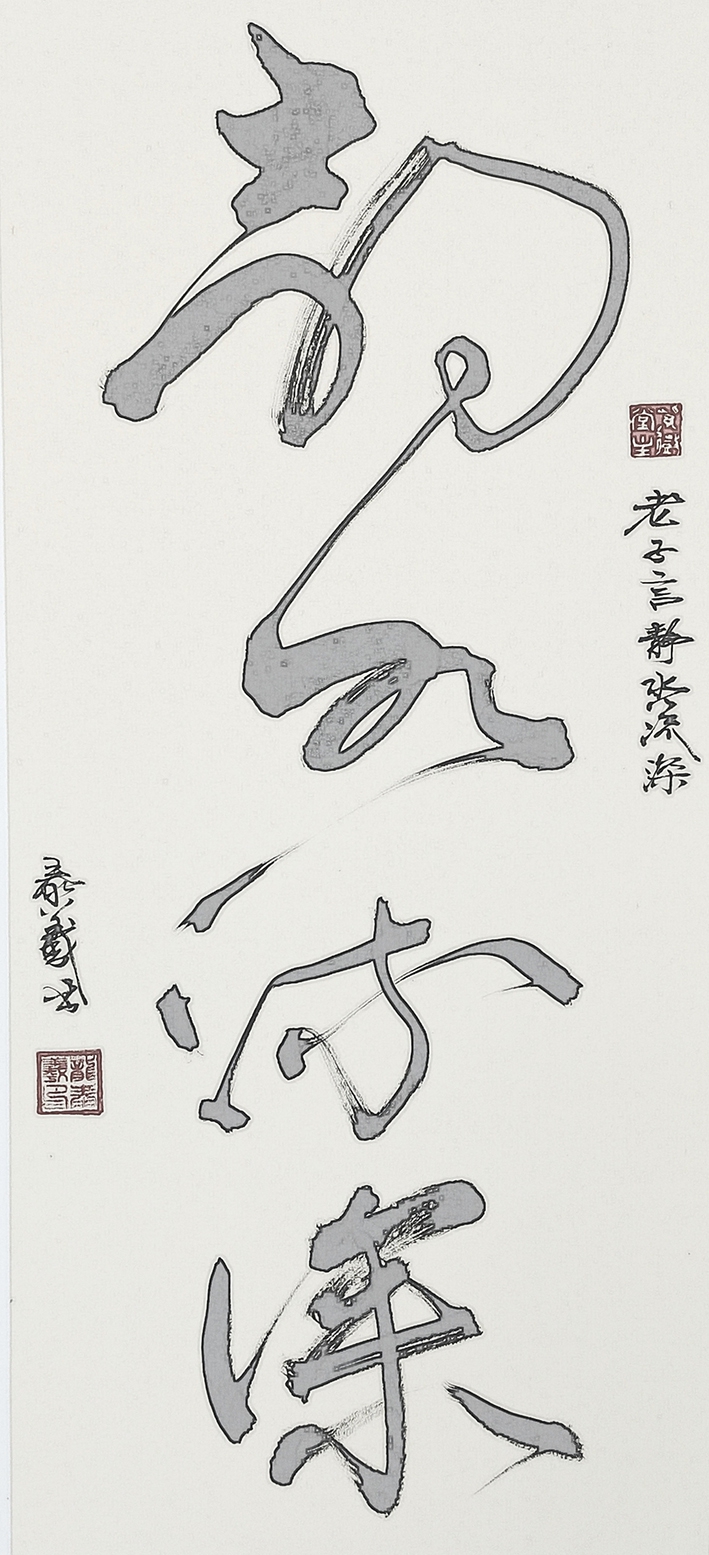 老子言静水流深
静水流深
泰羲书